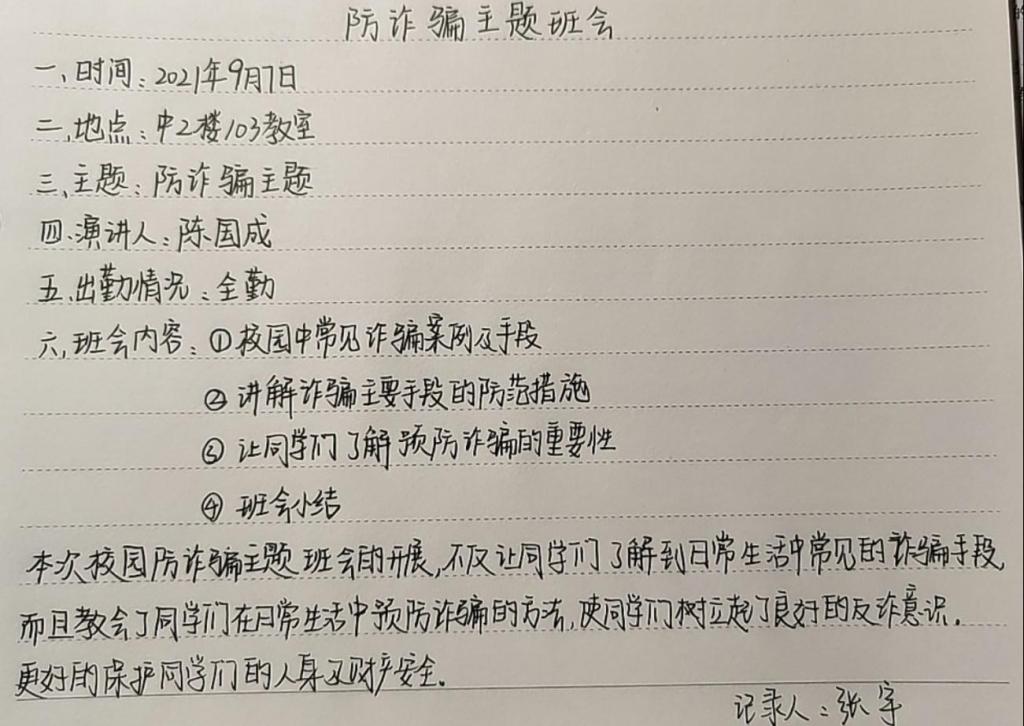 防诈骗主题班会
一、时间:2021年9月7日
二、地点:中2楼103教室
三、主题:防诈骗主题
四、演讲人:陈国成
五、出勤情况:全勤
六、班会内容:①校园中常见诈骗案例及手段
②讲解诈骗主要手段的防范措施
③让同学们了解预防诈骗的重要性
④班会小结
本次校园防诈骗主题班会的开展,不仅让同学们了解到日常生活中常见的诈骗手段,
而且教会了同学们在日常生活中预防诈骗的方法,使同学们树立起了良好的反诈意识。
更好的保护同学们的人身及财产安全。
记录人:张宇